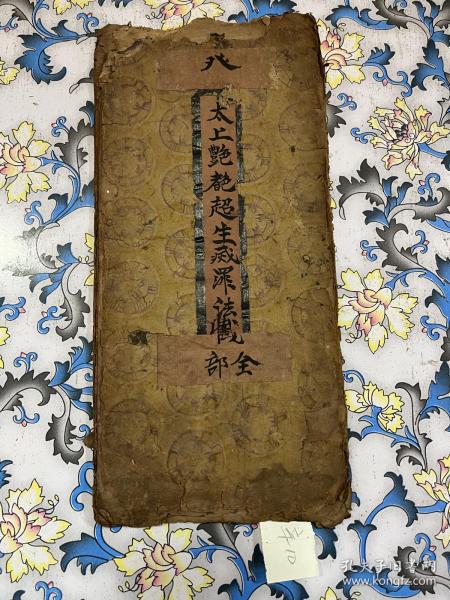 八
太上艷艷超生滅罪法藏
全部
孔夫子旧书网
www.kongfz.com